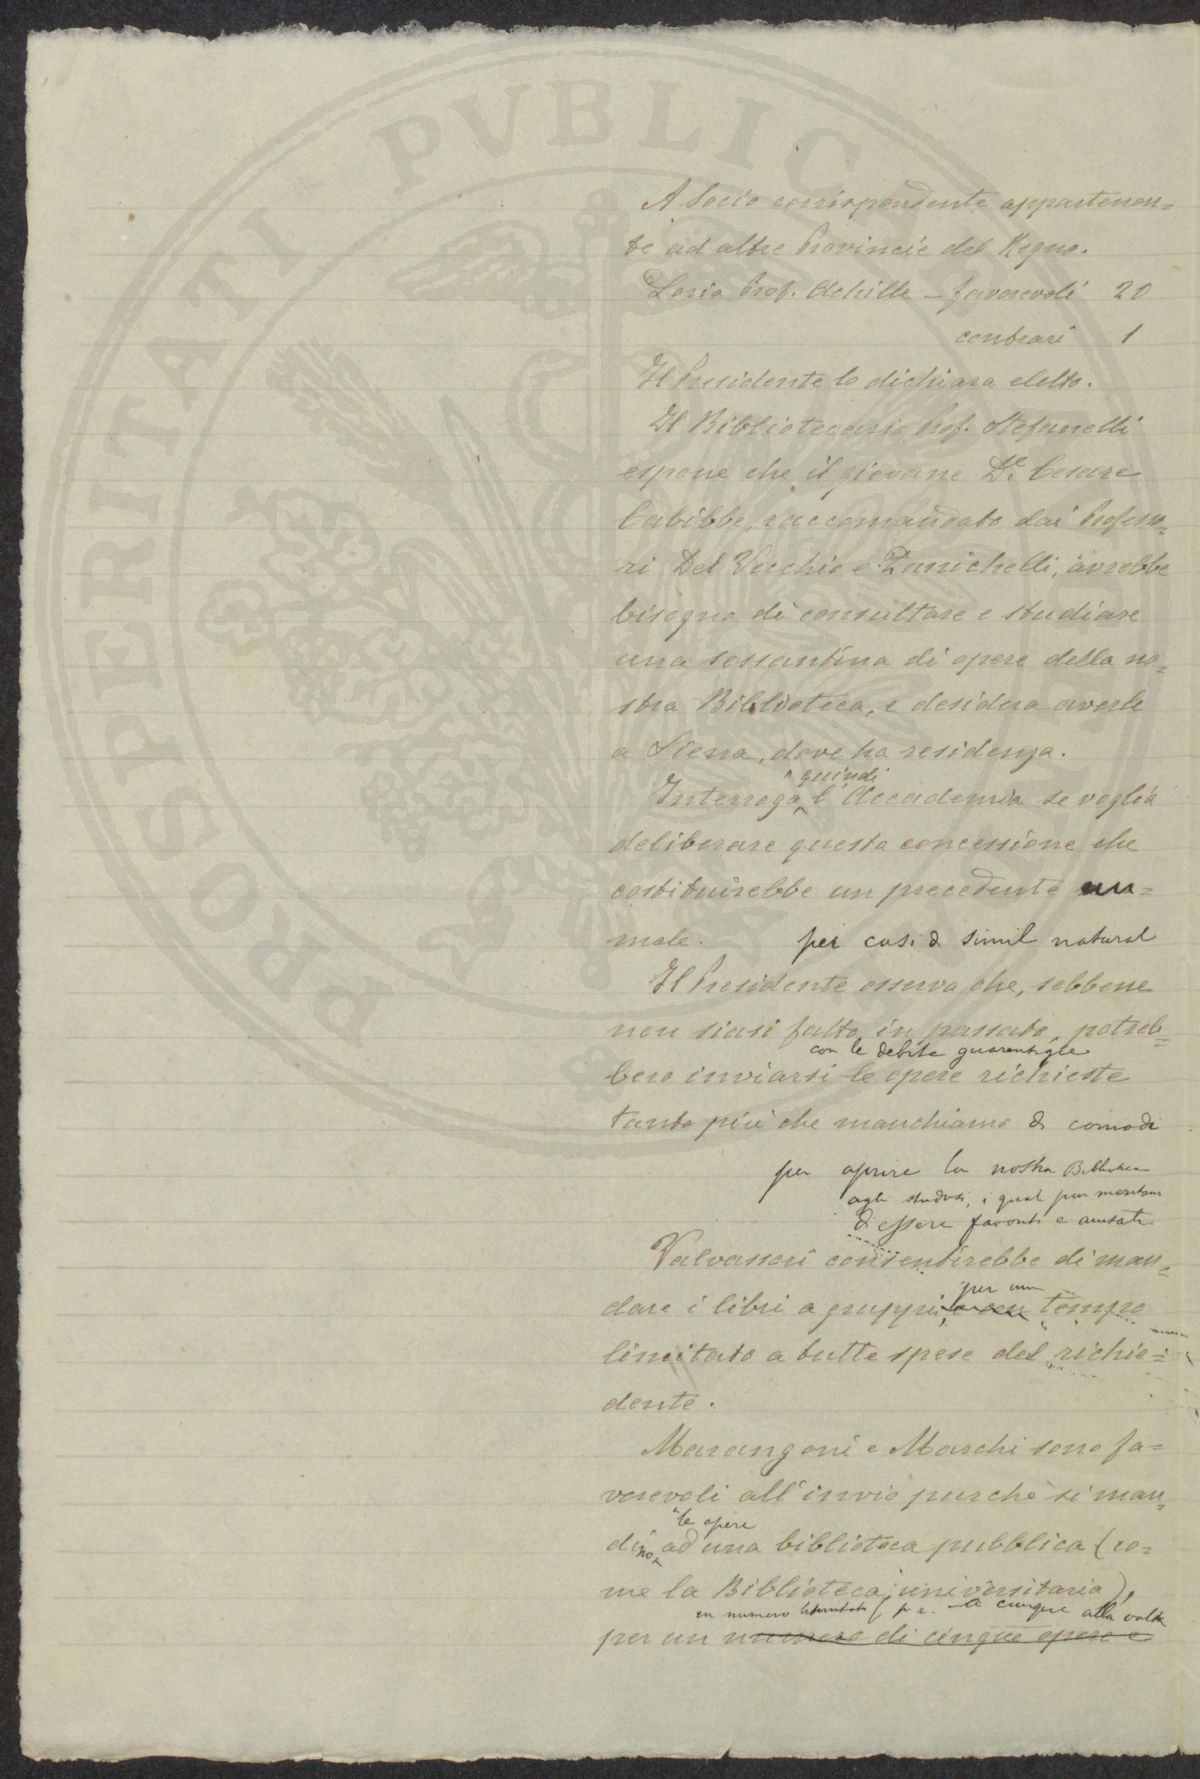 A Socio corrispondente appartenen=
te ad altre Provincie del Regno.
Loria Prof. Achille – favorevoli 20
contrari 1
Il Presidente lo dichiara eletto.
Il Bibliotecario Prof. Stefanelli
espone che il giovane Dr. Cesare
Cabibbe, raccomandato dai Professo=
ri Del Vecchio e Zanichelli, avrebbe
bisogno di consultare e studiare
una sessantina di opere della no=
stra Biblioteca, e desidera averle
a Siena, dove ha residenza.
quindi
Interroga l'Accademia se voglia
deliberare questa concessione che
costituirebbe un precedente
male. per casi d simil natural
Il Presidente osserva che, sebbene
non siasi fatto in passato, potreb=
con le debite guarentigie
bero inviarsi le opere richieste
tanto più che manchiamo di comodi
per aprire la nostra Biblioteca
agli studiosi, i quali pur meritano
di essere favoriti e aiutati.
Valvassori consentirebbe di man=
per un
dare i libri a gruppi, tempo
limitato a tutte spese del richie=
dente.
Marangoni e Marchi sono fa=
vorevoli all'invio purchè si man=
le opere
dino ad una biblioteca pubblica (co=
me la Biblioteca universitaria),
in numero limitato (p. e. a cinque alla volta
per un numero di cinque opere e
PROSPERITATI PVBLIC